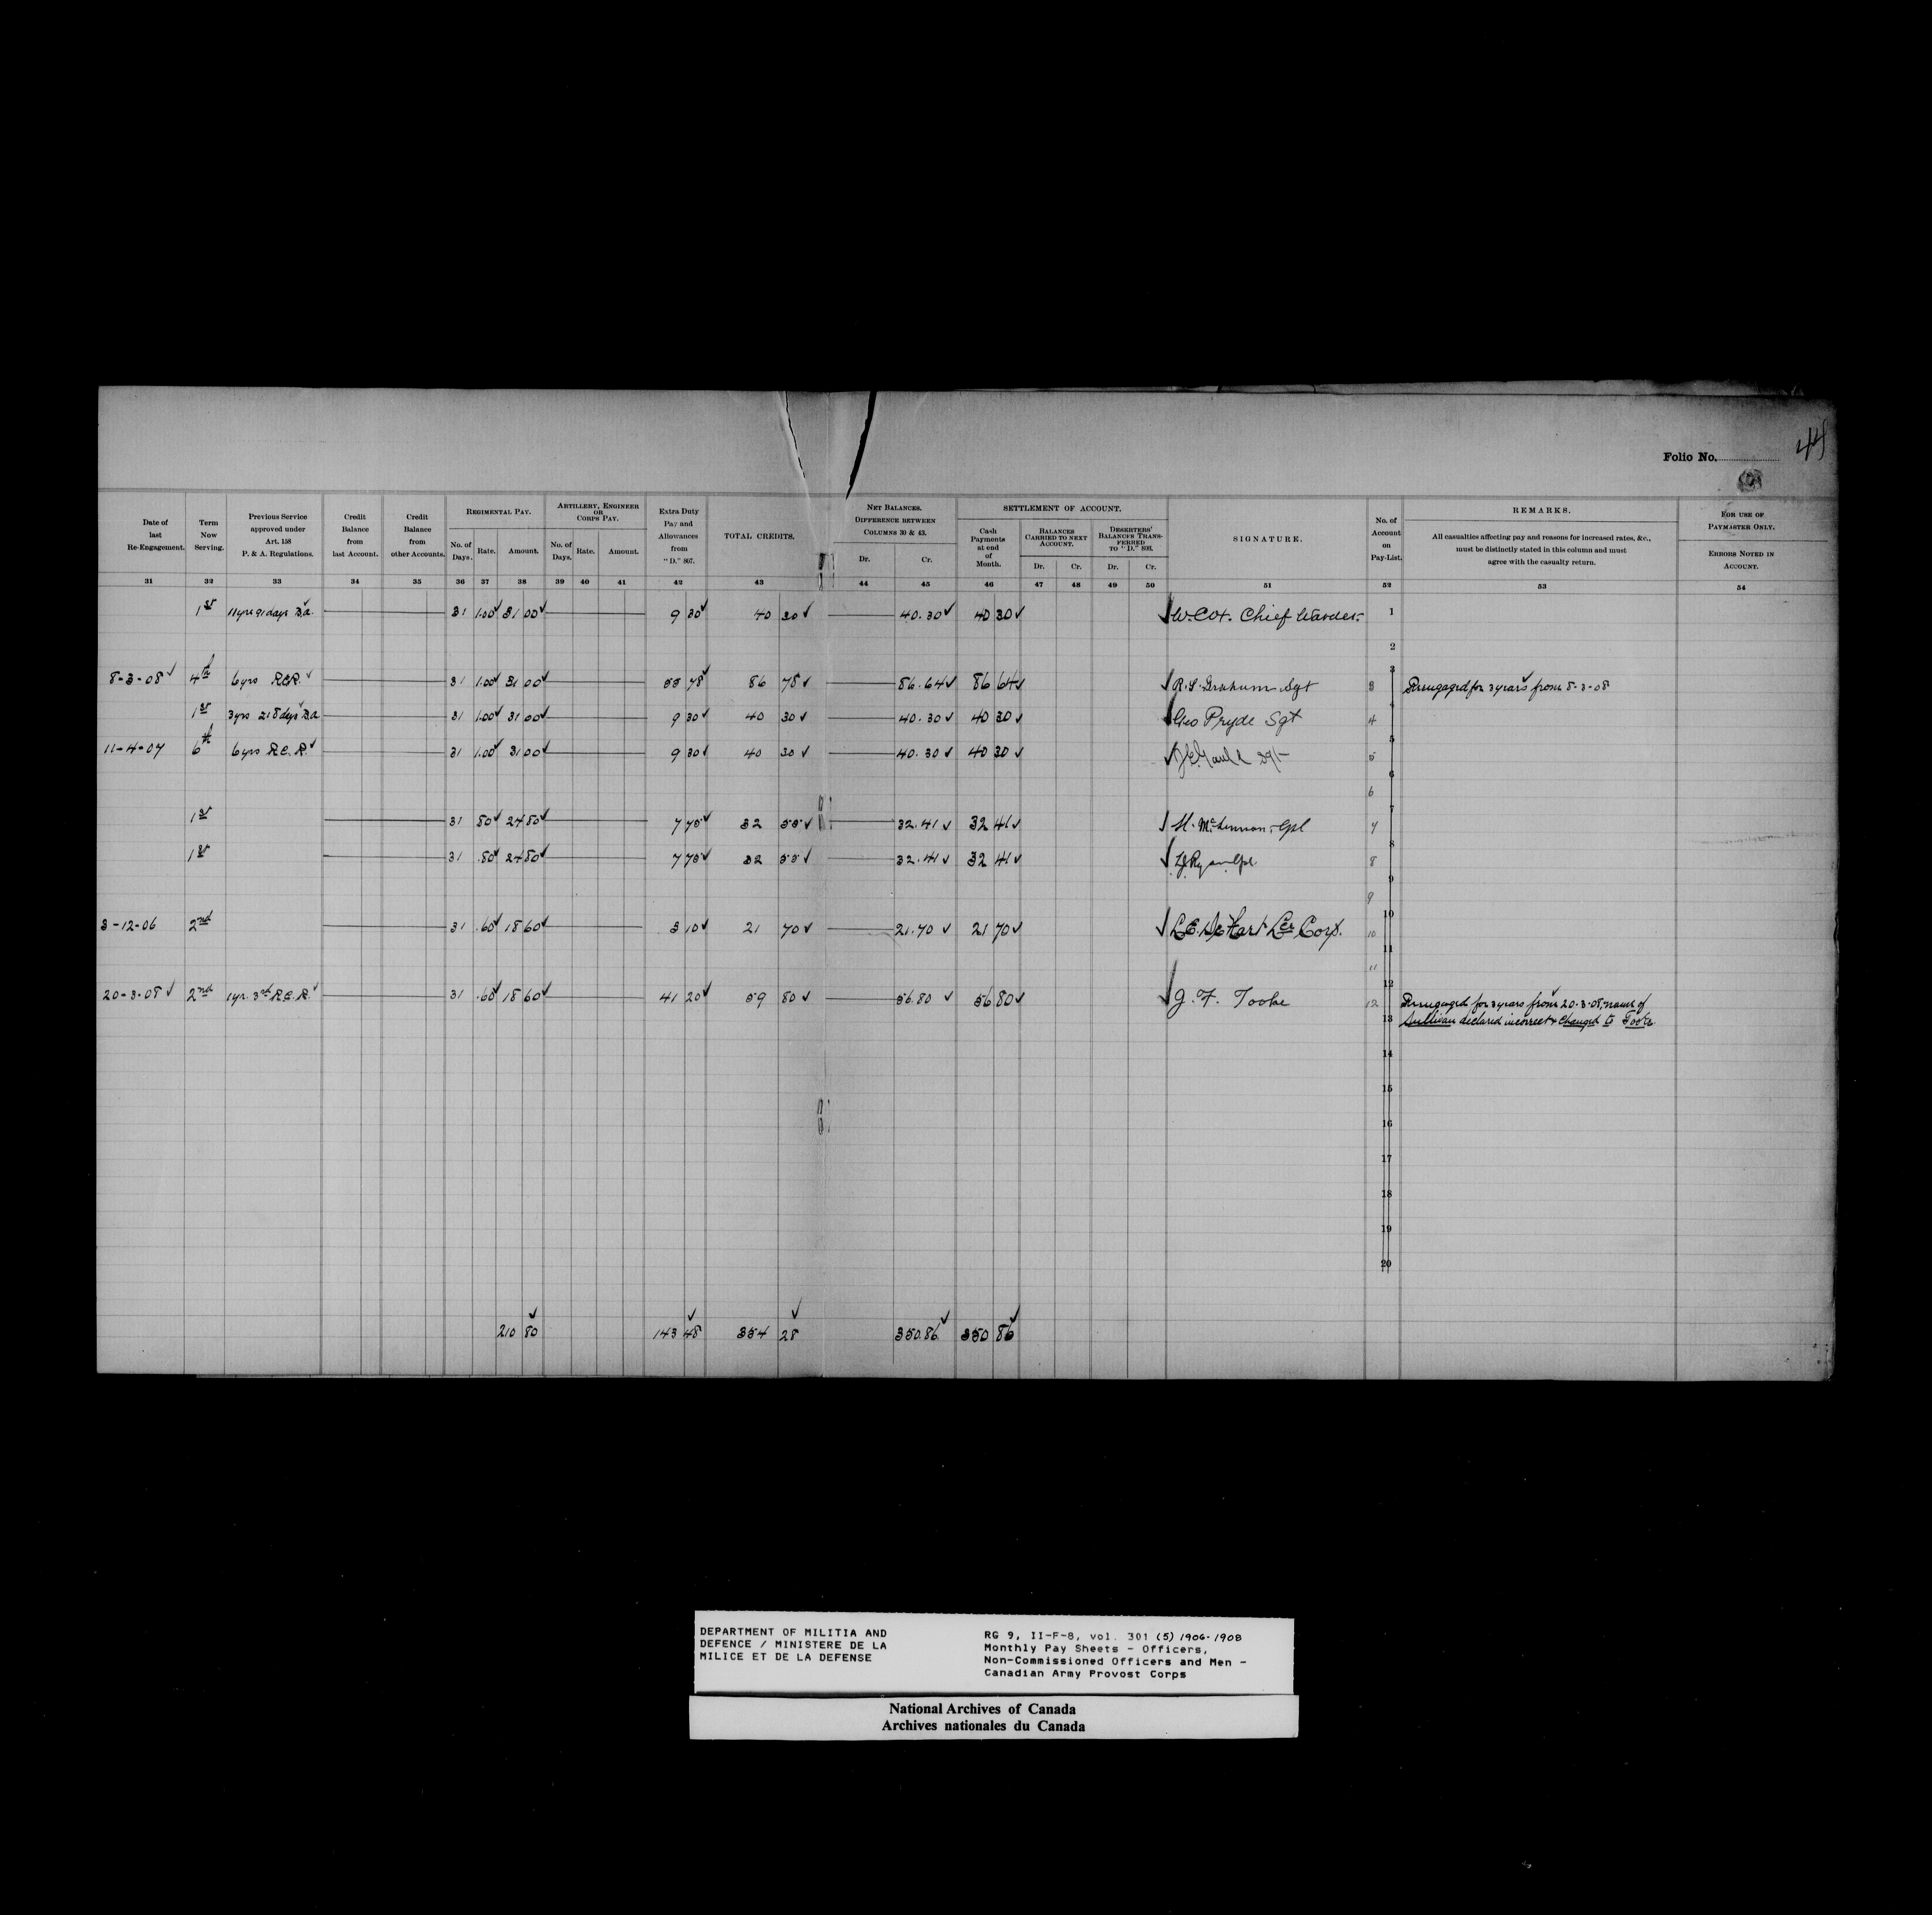 44
Folio No.
Date of last Re-Engagement.
Term Now Serving.
Previous Service approved under Art. 158 P. & A. Regulations.
Credit Balance from last Account.
Credit Balance from other Accounts.
REGIMENTAL PAY.
No. of Days. Rate. Amount.
ARTILLERY, ENGINEER OR CORPS PAY.
No. of Days. Rate. Amount.
Extra Duty Pay and Allowances from "D." 867.
TOTAL CREDITS.
NET BALANCES. DIFFERENCE BETWEEN COLUMNS 30 & 43.
Dr. Cr.
SETTLEMENT OF ACCOUNT.
Cash Payments at end of Month.
BALANCES CARRIED TO NEXT ACCOUNT.
Dr. Cr.
DESERTERS' BALANCES TRANSFERRED TO "D." 803.
Dr. Cr.
SIGNATURE.
No. of Account on Pay-List.
REMARKS.
All casualties affecting pay and reasons for increased rates, &c., must be distinctly stated in this column and must agree with the casualty return.
FOR USE OF PAYMASTER ONLY.
ERRORS NOTED IN ACCOUNT.
31 32 33 34 35 36 37 38 39 40 41 42 43 44 45 46 47 48 49 50 51 52 53 54
1st 11yrs 91days 31 1.00 31 00 9 30 40 30 40.30 40 30 W. Cox. Chief Warder. 1
2
8-3-08 4th 6yrs R.C.R. 31 1.00 31 00 55 78 86 78 86.64 86 64 R. S. Graham Sgt 3 3 Reengaged for 3 years from 8-3-08
1st 3yrs 218 days 31 1.00 31 00 9 30 40 30 40.30 40 30 Geo Pryde Sgt 4
11-4-07 6th 6yrs R.C.R. 31 1.00 31 00 9 30 40 30 40.30 40 30 Sgt 5 5
6 6
1st 31 80 24 80 7 75 32 55 32.41 32 41 Cpl 7 7
1st 31 .80 24 80 7 75 32 55 32.41 32 41 Ryan Cpl. 8 8
9 9
3-12-06 2nd 31 .60 18 60 3 10 21 70 21.70 21 70 L.E. DeHart Lce Corp. 10 10
11 11
20-3-08 2nd 1yr. 3rd R.C.R. 31 .60 18 60 41 20 59 80 56.80 56 80 J. F. Tooke 12 12 Reengaged for 3 years from 20-3-08, name of
13 Sullivan declared incorrect & changed to Tooke.
14
15
16
17
18
19
20
210 80 143 48 354 28 350.86 350 86
DEPARTMENT OF MILITIA AND
DEFENCE / MINISTERE DE LA
MILICE ET DE LA DEFENSE
RG 9, II-F-8, vol. 301 (5) 1906-1908
Monthly Pay Sheets - Officers,
Non-Commissioned Officers and Men -
Canadian Army Provost Corps
National Archives of Canada
Archives nationales du Canada